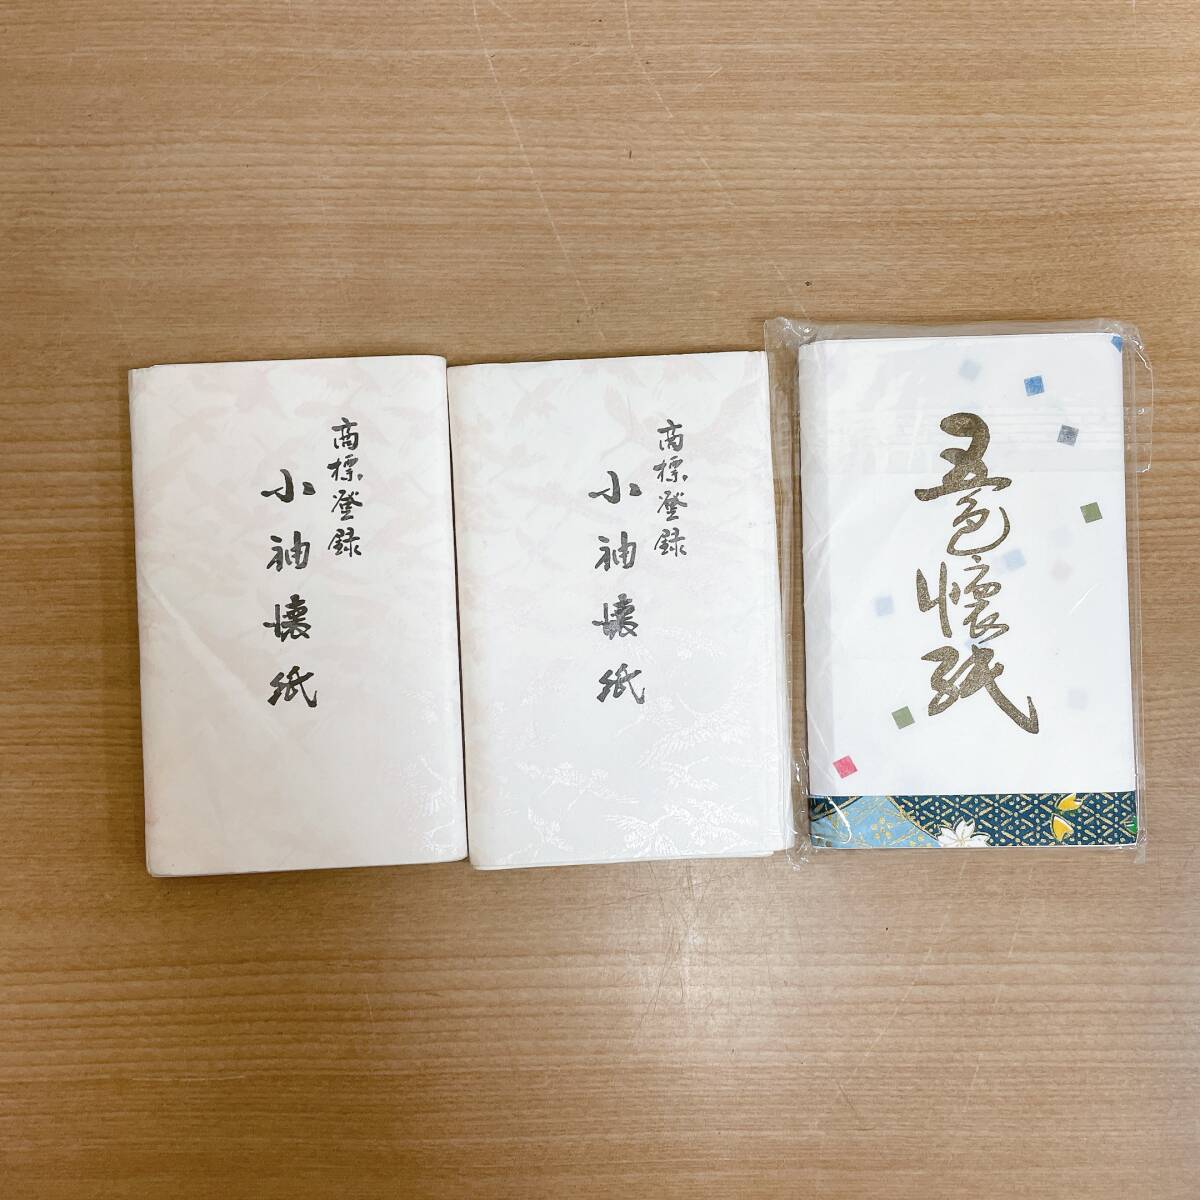 商標登録
小袖懐紙
商標登録
小袖懐紙
五色懐紙